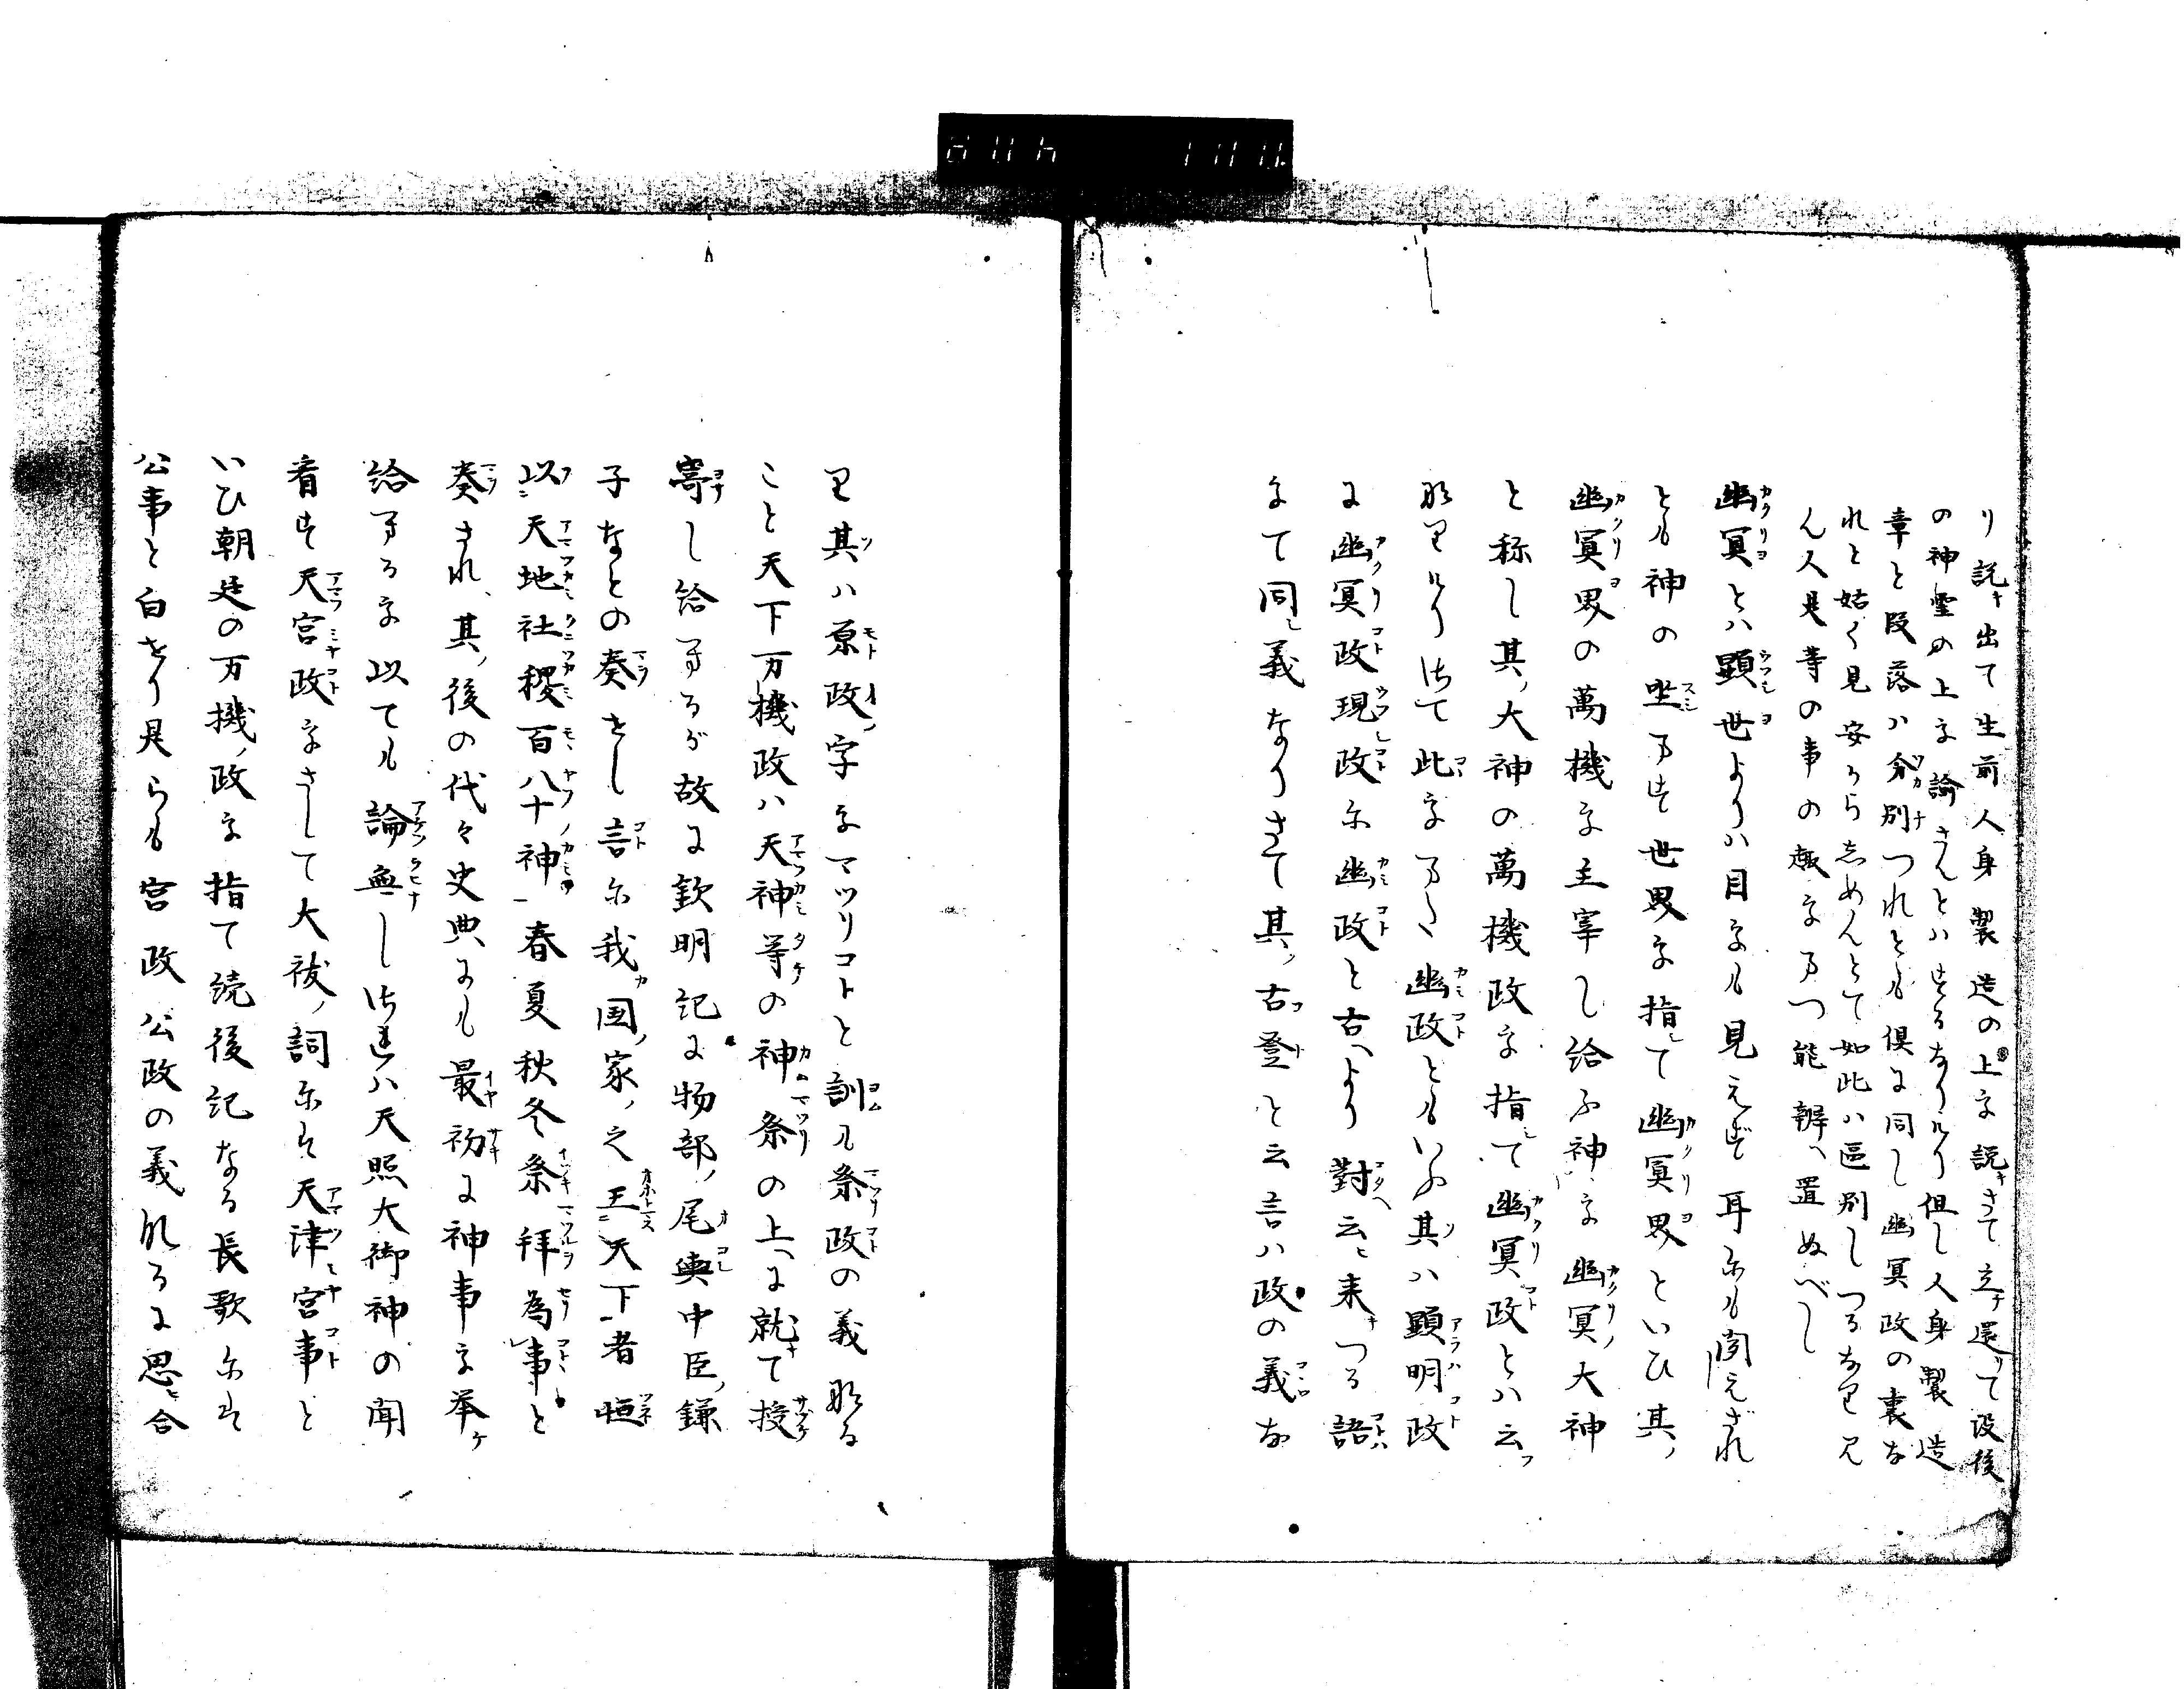 り説出て生前人身製造の上を説さて立還て没後
の神霊の上を論さんとはするなりけり但し人身製造
章と段落は分別つれとも倶に同し幽冥政の裏な
れと姑く見安からしめんとて如此は區別しつるなり見
ん人是等の事の趣をよく能辨へ置ぬべし
幽冥とは顕世よりは目にも見えず耳にも聞えざれ
とも神の坐ます世界を指て幽冥界といひ其ノ
幽冥界の萬機を主宰し給ふ神を幽冥大神
と称し其ノ大神の萬機政を指て幽冥政とは云フ
なりけりさて此をまた幽政ともいふ其は顕明政
に幽冥政現政に幽政と古へより對云ヒ来つる語
にて同シ義なりさて其ノ古登と云言は政の義な
り其は原政ノ字をマツリコトと訓ル祭政の義なる
こと天下万機政は天神等の神祭の上に就て授
寄し給するが故に欽明記に物部ノ尾輿中臣ノ鎌
子なとの奏さし言に我国家ノ之王天下者恒
以天地社稷百八十神春夏秋冬祭拝為事と
奏され其ノ後の代々史典にも最初に神事を挙ケ
給するを以ても論無し此は天照大御神の聞
看す天宮政をさして大祓ノ詞には天津宮事と
いひ朝廷の万機ノ政を指て続後記なる長歌には
公事と白せり是らも宮政公政の義なるに思ヒ合